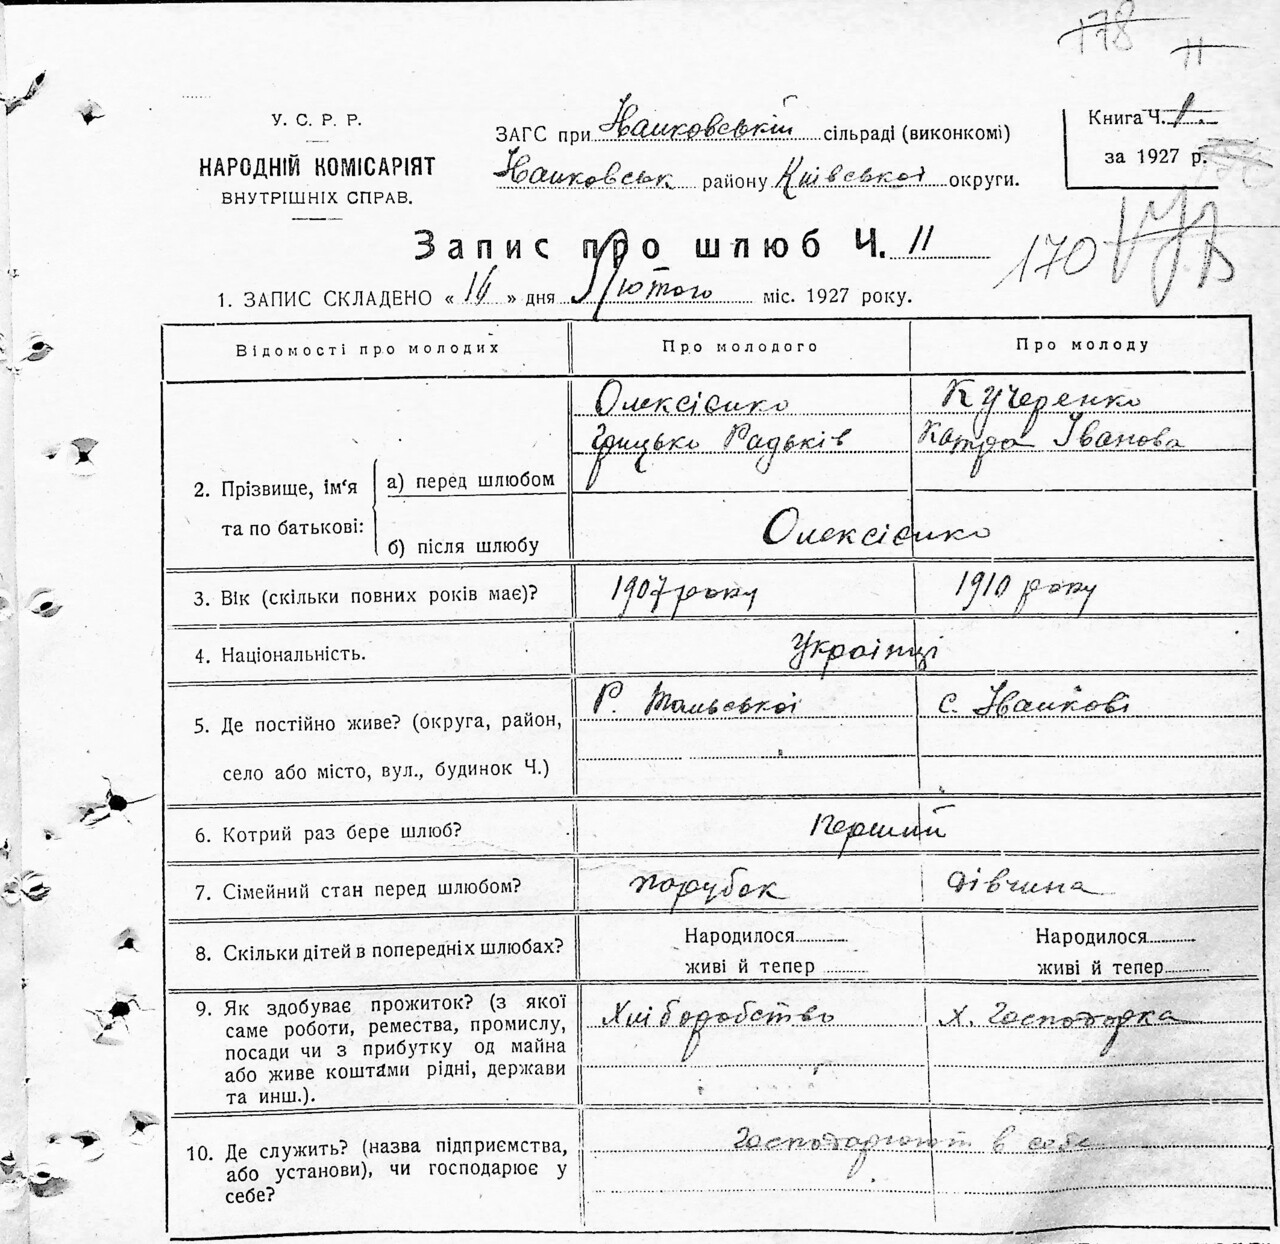 178
11
У. С. Р. Р.
НАРОДНІЙ КОМІСАРІЯТ
ВНУТРІШНІХ СПРАВ.
ЗАГС при Іванковській сільраді (виконкомі)
Іванковськ району Київської округи.
Книга Ч. 1.
за 1927 р.
Запис про шлюб Ч. 11
170
1. ЗАПИС СКЛАДЕНО « 14 » дня Лютого міс. 1927 року.
Відомості про молодих Про молодого Про молоду
Олексієнко Кучеренко
Грицько Радьків Катря Іванова
2. Прізвище, ім'я та по батькові:
а) перед шлюбом
б) після шлюбу
Олексієнко
3. Вік (скільки повних років має)? 1907 року 1910 року
4. Національність. Українці
5. Де постійно живе? (округа, район, Р. Тальської с. Іванкові
село або місто, вул., будинок Ч.)
6. Котрий раз бере шлюб? Перший
7. Сімейний стан перед шлюбом? парубок дівчина
8. Скільки дітей в попередніх шлюбах?
Народилося Народилося
живі й тепер живі й тепер
9. Як здобуває прожиток? (з якої Хліборобство Х. Господарка
саме роботи, ремества, промислу,
посади чи з прибутку од майна
або живе коштами рідні, держави
та инш.).
10. Де служить? (назва підприємства, Господарюют в себе
або установи), чи господарює у
себе?